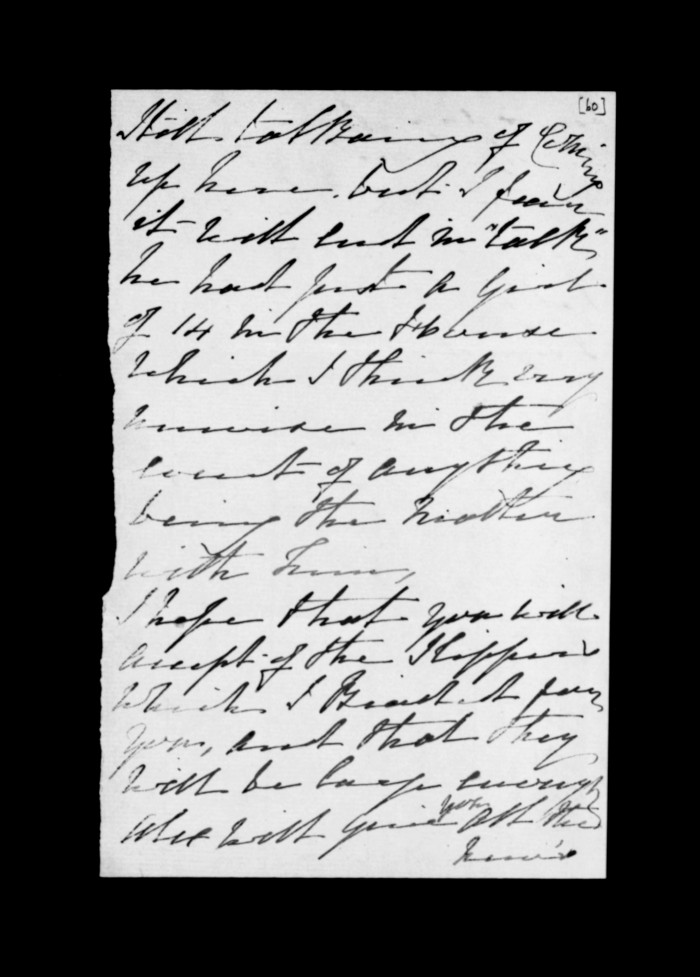 [60]
Still talking of Coming
up here. but I fear
it will end in "talk"
he had just a Girl
of 14 in the House
which I think very
unwise in the
event of anything
being the matter
with him,
I hope that you will
accept of the Slippers
which I
you, and that they
will be large enough
Alex will give you all the
new's